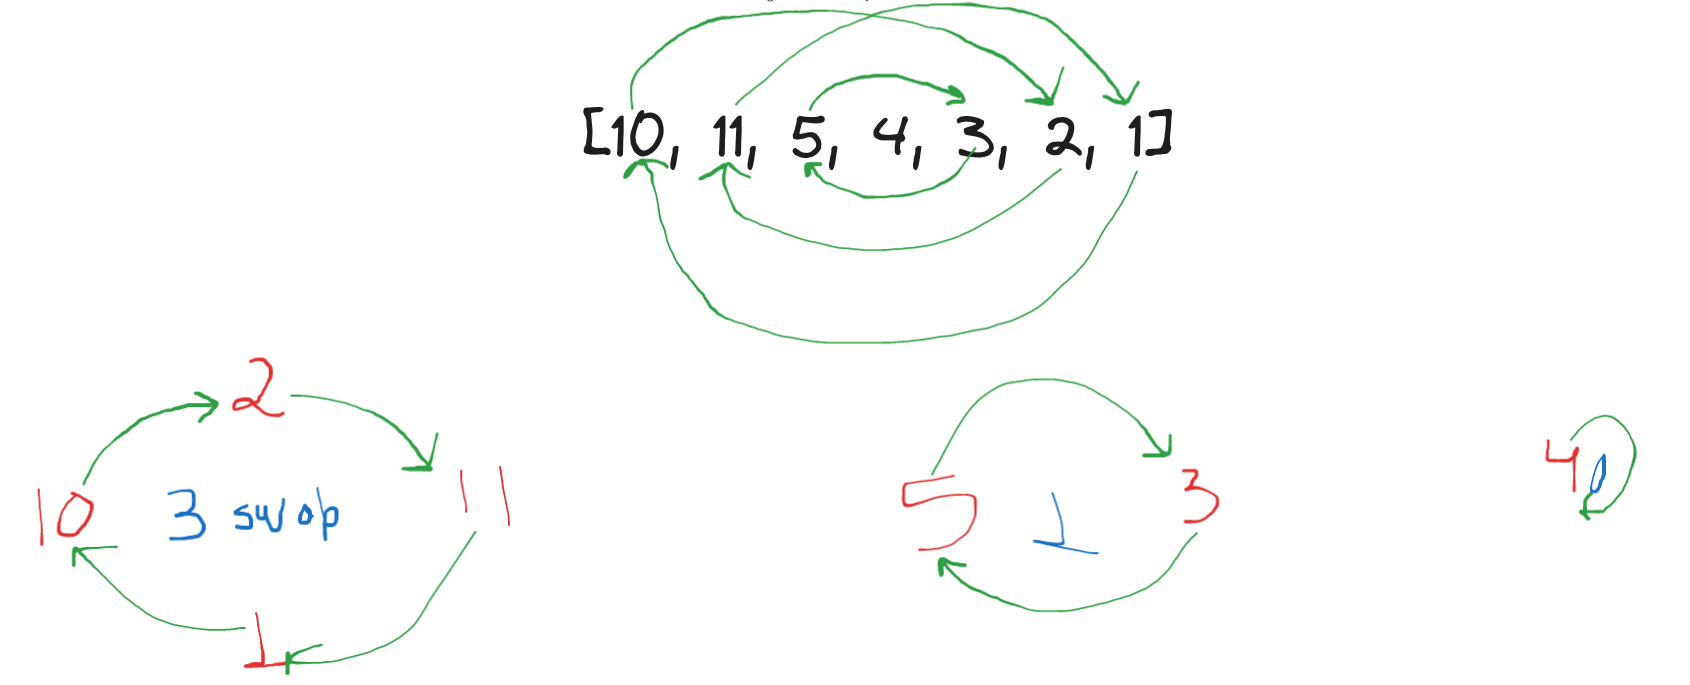 [10, 11, 5, 4, 3, 2, 1]
2
10 3 swap 11
5 1 3
4 0
1